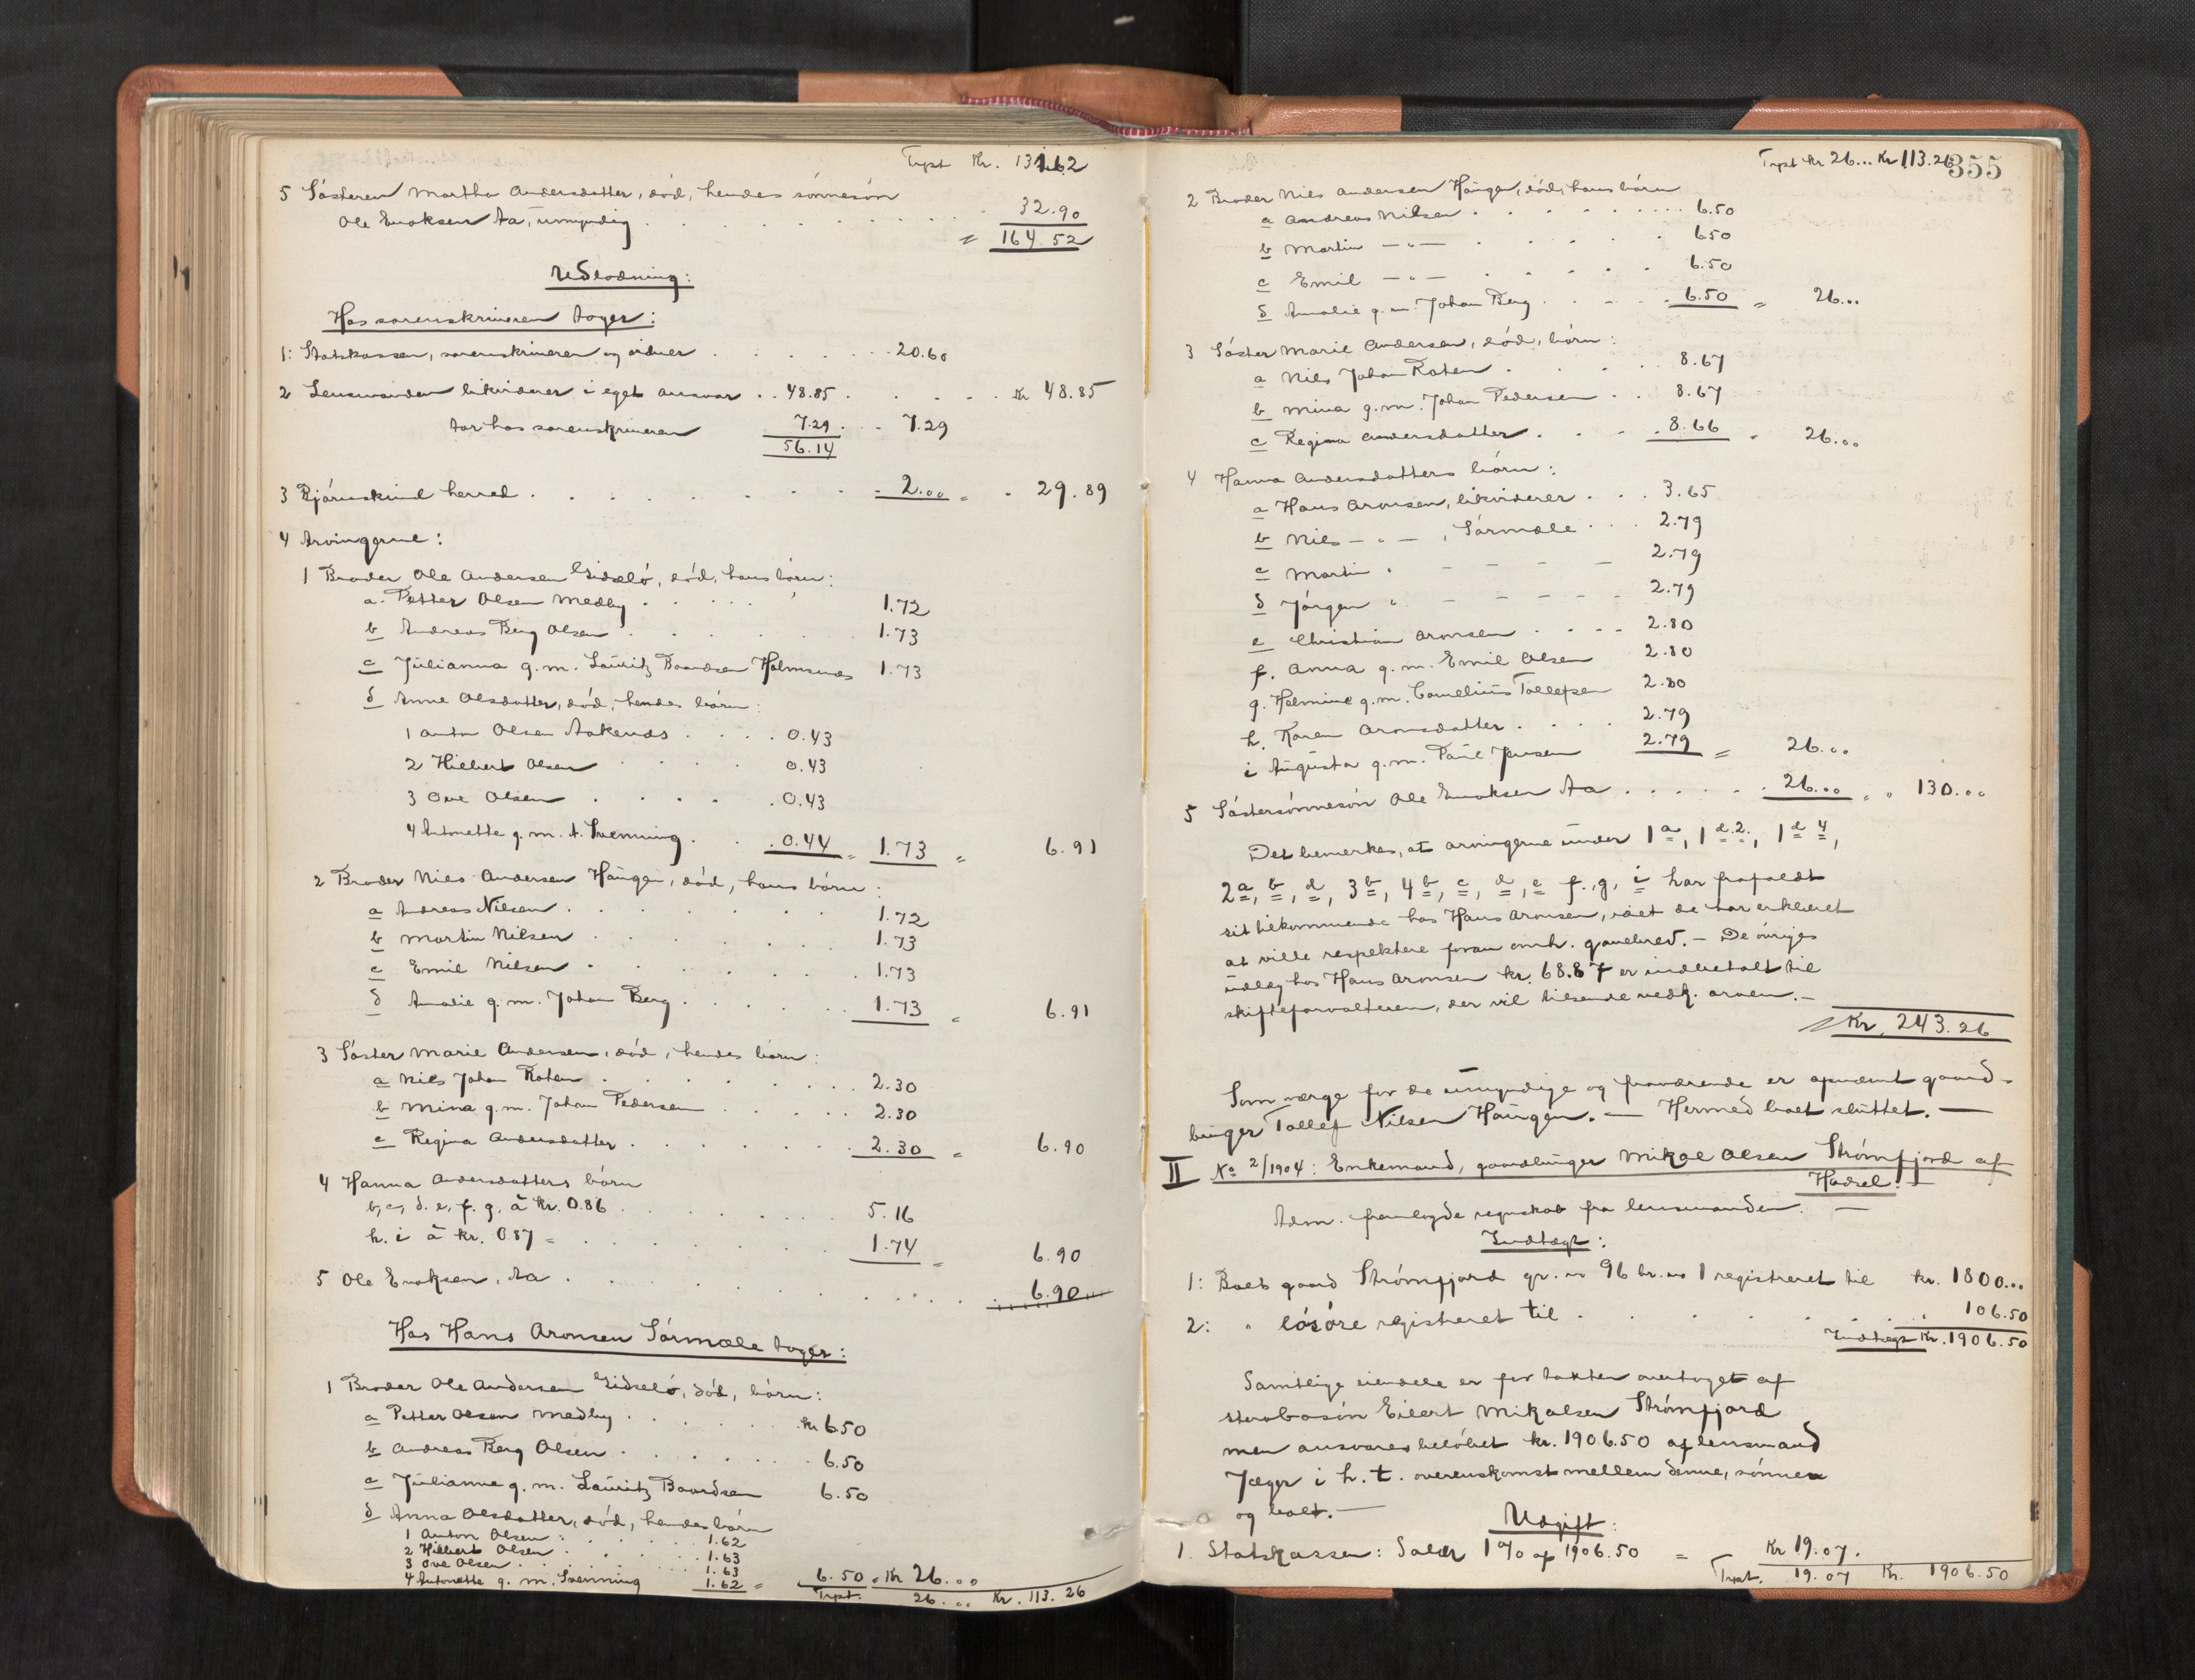 Trpt Kr. 131.62
5 Søsteren Martha Andersdatter, død, hendes sønnesøn
Ole Enoksen Aa, umyndig . . . . . . 32.90
= 164.52
Udlodning:
Hos sorenskriveren tager:
1: Statskassen, sorenskriveren og ordner . . . . . . 20.60
2 Lensmanden likviderer i eget ansvar . . 48.85 . . . . . Kr 48.85
tar hos sorenskriveren 7.29 . . . 7.29
56.14
3 Kjærnskind herred . . . . . . . . . 2.00 = . 29.89
4 Arvingerne:
1 Broder Ole Andersen Gidsló, død, hans børn:
a. Petter Olsen Medby . . . . . . 1.72
b Andreas Berg Olsen . . . . . . 1.73
c Julianna g. m. Lauritz Baardsen Holmsnes 1.73
d Anne Olsdatter, død, hendes børn:
1 Anton Olsen Aakenes . . . . 0.43
2 Hilbert Olsen . . . . 0.43
3 Ove Olsen . . . . . 0.43
4 Antonette g. m. A. Svenning . . . 0.44 = 1.73 = 6.91
2 Broder Nies Andersen Haugen, død, hans børn:
a Andreas Nilsen . . . . . . . 1.72
b Martin Nilsen . . . . . . . 1.73
c Emil Nilsen . . . . . . . 1.73
d Amalie g. m. Johan Berg . . . . . 1.73 = 6.91
3 Søster Marie Andersen, død, hendes børn:
a Nils Johan Roten . . . . . . . 2.30
b Mina g. m. Johan Pedersen . . . . . 2.30
c Regina Andersdatter . . . . . . 2.30 = 6.90
4 Hanna Andersdatters børn
b, c, d. e, f. g, à kr. 0.86 . . . . . . . 5.16
h. i à kr. 0.87 = . . . . . . 1.74 = 6.90
5 Ole Enoksen, Aa . . . . . . . . . . . 6.90
Hos Hans Aronsen Sørmæle tager:
1 Broder Ole Andersen Gidsló, død, børn:
a Petter Olsen Medby . . . . . . kr 6.50
b Andreas Berg Olsen . . . . . . . 6.50
c Julianne g. m. Lauritz Baardsen 6.50
d Anna Olsdatter, død, hendes børn
1 Anton Olsen . . . . . . 1.62
2 Hilbert Olsen . . . . . . 1.63
3 Ove Olsen . . . . . . . 1.63
4 Antonette g. m. Svenning 1.62 = 6.50 = Kr 26.00
Trpt. 26.00 Kr. 113.26
Trpt kr 26... Kr 113.26
355
2 Broder Nies Andersen Haugen, død, hans børn
a Andreas Nilsen . . . . . . . . . 6.50
b Martin — " — . . . . . 6.50
c Emil — " — . . . . . . 6.50
d Amalie g. m. Johan Berg . . . . 6.50 = 26...
3 Søster Marie Andersen, død, børn:
a Nils Johan Roten . . . . . 8.67
b Mina g. m. Johan Pedersen . . 8.67
c Regina Andersdatter . . . . 8.66 = 26.00
4 Hanna Andersdatters børn:
a Hans Aronsen, likviderer . . . 3.65
b Nils — " — , Sørmæle . . . 2.79
c Martin " — — — — 2.79
d Jørgen " — — — — 2.79
e Christian Aronsen . . . . 2.80
f. Anna g. m. Emil Olsen 2.80
g. Helmine g. m. Cornelius Tollefsen 2.80
h. Karen Aronsdatter . . . . 2.79
i Augusta g. m. Paul Jensen 2.79 = 26.00
5 Søstersønnesøn Ole Enoksen Aa . . . . . . 26.00 = " 130.00
Det bemerkes, at arvingerne under 1 a, 1 d. 2., 1 d 4,
2 a, b, d, 3 b, 4 b, c, d, e f., g, i har frafaldt
sit tilkommende hos Hans Aronsen, idet de har erklæret
at ville respektere foran omh. gavebrev. — De øvriges
udlæg hos Hans Aronsen kr. 68.87 er indbetalt til
skifteforvalteren, der vil tilsende vedk. arven. —
Kr. 243.26
Som værge for de umyndige og fraværende er opnævnt gaard-
bruger Tollef Nilsen Haugen. — Hermed boet sluttet. —
II No 2/1904: Enkemand, gaardbruger Mikal Olsen Strømfjord af
Hadsel. —
Adm. fremlagde regnskab fra lensmanden. —
Indtægt:
1: Boets gaard Strømfjord gr. no 96 br. no 1 registreret til kr. 1800...
2: " løsøre registreret til . . . . . . . 106.50
Indtægt Kr. 1906.50
Samtlige eiendele er for takten overtaget af
stervbosøn Eilert Mikalsen Strømfjord
men ansvares beløbet kr. 1906.50 af lensmand
Jæger i h. t. overenskomst mellem denne, sønnen
og boet. —
Udgift:
1. Statskassen: Salær 1 % af 1906.50 = Kr 19.07.
Trpt. 19.07 Kr. 1906.50